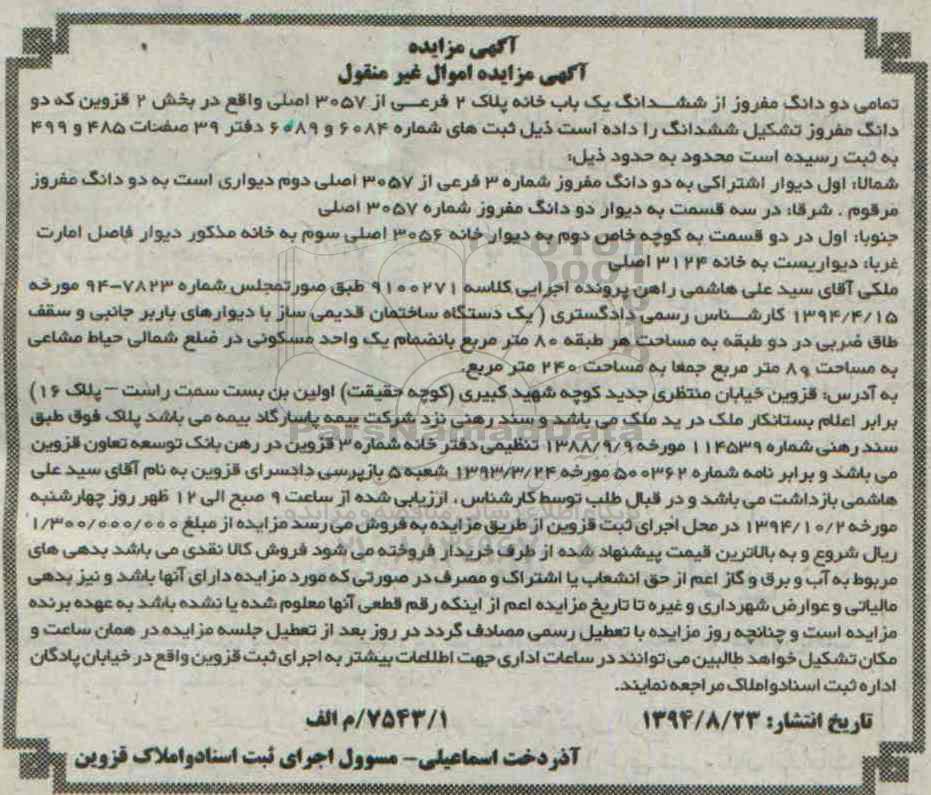 آگهی مزایده
آگهی مزایده اموال غیر منقول
تمامی دو دانگ مفروز از ششدانگ یک باب خانه پلاک ۲ فرعی از ۳۰۵۷ اصلی واقع در بخش ۲ قزوین که دو
دانگ مفروز تشکیل ششدانگ را داده است ذیل ثبت های شماره ۶۰۸۴ و ۶۰۸۹ دفتر ۳۹ صفحات ۴۸۵ و ۴۹۹
به ثبت رسیده است محدود به حدود ذیل:
شمالا: اول دیوار اشتراکی به دو دانگ مفروز شماره ۳ فرعی از ۳۰۵۷ اصلی دوم دیواری است به دو دانگ مفروز
مرقوم . شرقا: در سه قسمت به دیوار دو دانگ مفروز شماره ۳۰۵۷ اصلی
جنوبا: اول در دو قسمت به کوچه خاص دوم به دیوار خانه ۳۰۵۶ اصلی سوم به خانه مذکور دیوار فاصل امارت
غربا: دیواریست به خانه ۳۱۲۴ اصلی
ملکی آقای سید علی هاشمی راهن پرونده اجرایی کلاسه ۹۱۰۰۲۷۱ طبق صورتمجلس شماره ۷۸۲۳-۹۴ مورخه
۱۳۹۴/۴/۱۵ کارشناس رسمی دادگستری ( یک دستگاه ساختمان قدیمی ساز با دیوارهای باربر جانبی و سقف
طاق ضربی در دو طبقه به مساحت هر طبقه ۸۰ متر مربع بانضمام یک واحد مسکونی در ضلع شمالی حیاط مشاعی
به مساحت ۸۰ متر مربع جمعا به مساحت ۲۴۰ متر مربع.
به آدرس: قزوین خیابان منتظری جدید کوچه شهید کبیری (کوچه حقیقت) اولین بن بست سمت راست – پلاک ۱۶)
برابر اعلام بستانکار ملک در ید ملک می باشد و سند رهنی نزد شرکت بیمه پاسارگاد بیمه می باشد پلاک فوق طبق
سند رهنی شماره ۱۱۴۵۳۹ مورخه ۱۳۸۸/۹/۹ تنظیمی دفتر خانه شماره ۳ قزوین در رهن بانک توسعه تعاون قزوین
می باشد و برابر نامه شماره ۵۰۰۳۶۲ مورخه ۱۳۹۳/۳/۲۴ شعبه ۵ بازپرسی دادسرای قزوین به نام آقای سید علی
هاشمی بازداشت می باشد و در قبال طلب توسط کارشناس ، ارزیابی شده از ساعت ۹ صبح الی ۱۲ ظهر روز چهارشنبه
مورخه ۱۳۹۴/۱۰/۲ در محل اجرای ثبت قزوین از طریق مزایده به فروش می رسد مزایده از مبلغ ۱/۳۰۰/۰۰۰/۰۰۰
ریال شروع و به بالاترین قیمت پیشنهاد شده از طرف خریدار فروخته می شود فروش کالا نقدی می باشد بدهی های
مربوط به آب و برق و گاز اعم از حق انشعاب یا اشتراک و مصرف در صورتی که مورد مزایده دارای آنها باشد و نیز بدهی
مالیاتی و عوارض شهرداری و غیره تا تاریخ مزایده اعم از اینکه رقم قطعی آنها معلوم شده یا نشده باشد به عهده برنده
مزایده است و چنانچه روز مزایده با تعطیل رسمی مصادف گردد در روز بعد از تعطیل جلسه مزایده در همان ساعت و
مکان تشکیل خواهد طالبین می توانند در ساعات اداری جهت اطلاعات بیشتر به اجرای ثبت قزوین واقع در خیابان پادگان
اداره ثبت اسنادواملاک مراجعه نمایند.
تاریخ انتشار: ۱۳۹۴/۸/۲۳ ۷۵۴۳/۱/م الف
آذردخت اسماعیلی- مسوول اجرای ثبت اسنادواملاک قزوین